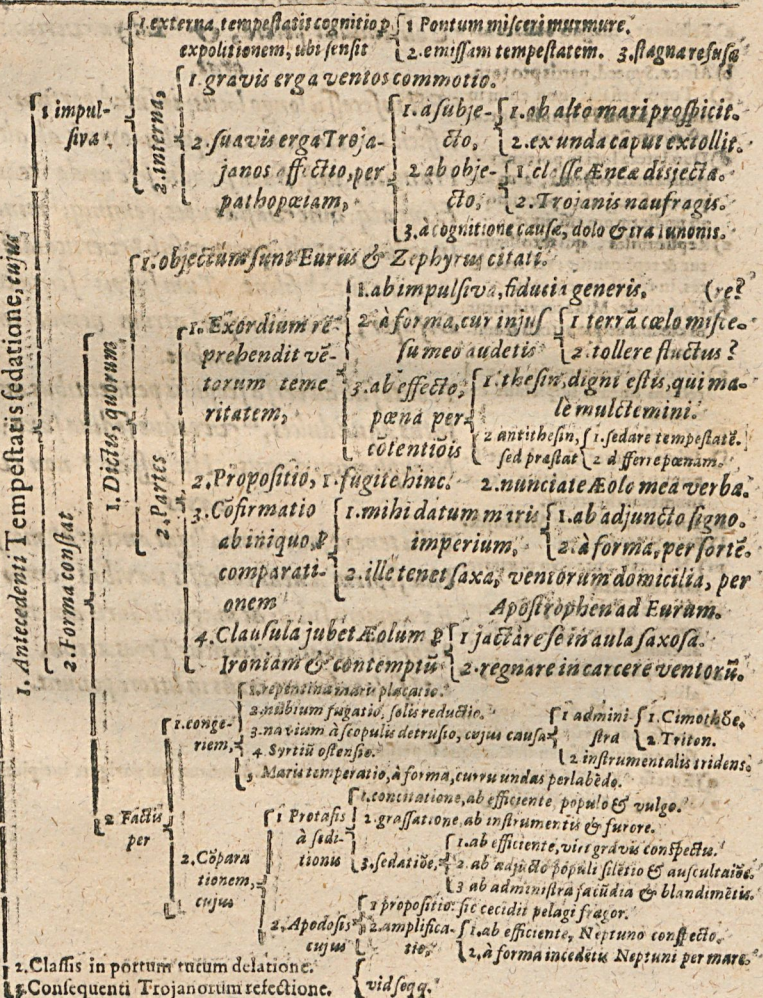 1. externa, tempestatis cognitio p
expolitionem, ubi sensit
1 Pontum misceri murmure.
2. emissam tempestatem. 3. stagna refusa
1 impul-
siva
2. interna,
1. gravis erga ventos commotio.
2. suavis erga Troja-
janos affectio, per
pathopœiam,
1. à subje-
cto,
1. ob alto mari prospicit.
2. ex unda caput extollit.
2 ab obje-
cto,
1. classe Æneæ disjecta.
2. Trojanis naufragis.
3. à cognitione causæ, dolo & ira Iunonis.
1. Antecedenti Tempestatis sedatione, cujus
2. Forma constat
1. Dictis, quorum
1. objectum sunt Eurus & Zephyrus citati.
2. Partes
1. Exordium re
prehendit vē-
torum teme
ritatem,
1. ab impulsiva, fiducia generis. (re?
2 à forma, cur injus
su meo audetis
1 terrā cœlo misce-
2. tollere fluctus?
3. ab effecto,
pœna per-
cōtentiōis
1. thesin, digni estis, qui ma-
lè mulctemini.
2 antithesin,
sed præstat
1. sedare tempestatē.
2 differre pœnam.
2. Propositio, 1. fugite hinc. 2. nunciate Æolo mea verba.
3. Cōfirmatio
ab iniquo, p
comparati-
onem
1. mihi datum maris
imperium,
1. ab adjuncto signo.
2. à forma, per sortē.
2. ille tenet saxa, ventorum domicilia, per
Apostrophen ad Eurum.
4. Clausula jubet Æolum p
Ironiam & contemptū
1 jactare se in aula saxosa.
2. regnare in carcere ventorū.
2 Factis
per
1. conge-
riem,
1. repentina maris placatio.
2. nubium fugatio, solis reductio.
3. navium à scopulis detrusio, cujus causa
1 admini-
stra
1. Cimothöe.
2. Triton.
2 instrumentalis tridens.
4 Syrtiū ostensio.
5 Maris temperatio, à forma, curru undas perlabēdo.
2. Cōpara
tionem,
cujus
1 Protasis
à sedi-
tionis
1. concitatione, ab efficiente populo & vulgo.
2. grassatione, ab instrumentis & furore.
3. sedatiōe,
1. ab efficiente, viri gravis conspectu.
2. ab adjūcto populi silētio & auscultatiōe.
3 ab administra facūdia & blandimētis.
2, Apodosis
cujus
1 propositio: sic cecidit pelagi fragor.
2. amplifica-
tio,
1. ab efficiente, Neptuno conspecto.
2, à forma incedētis Neptuni per mare.
2. Classis in portum tutum delatione.
3. Consequenti Trojanorum refectione.
vid seqq.